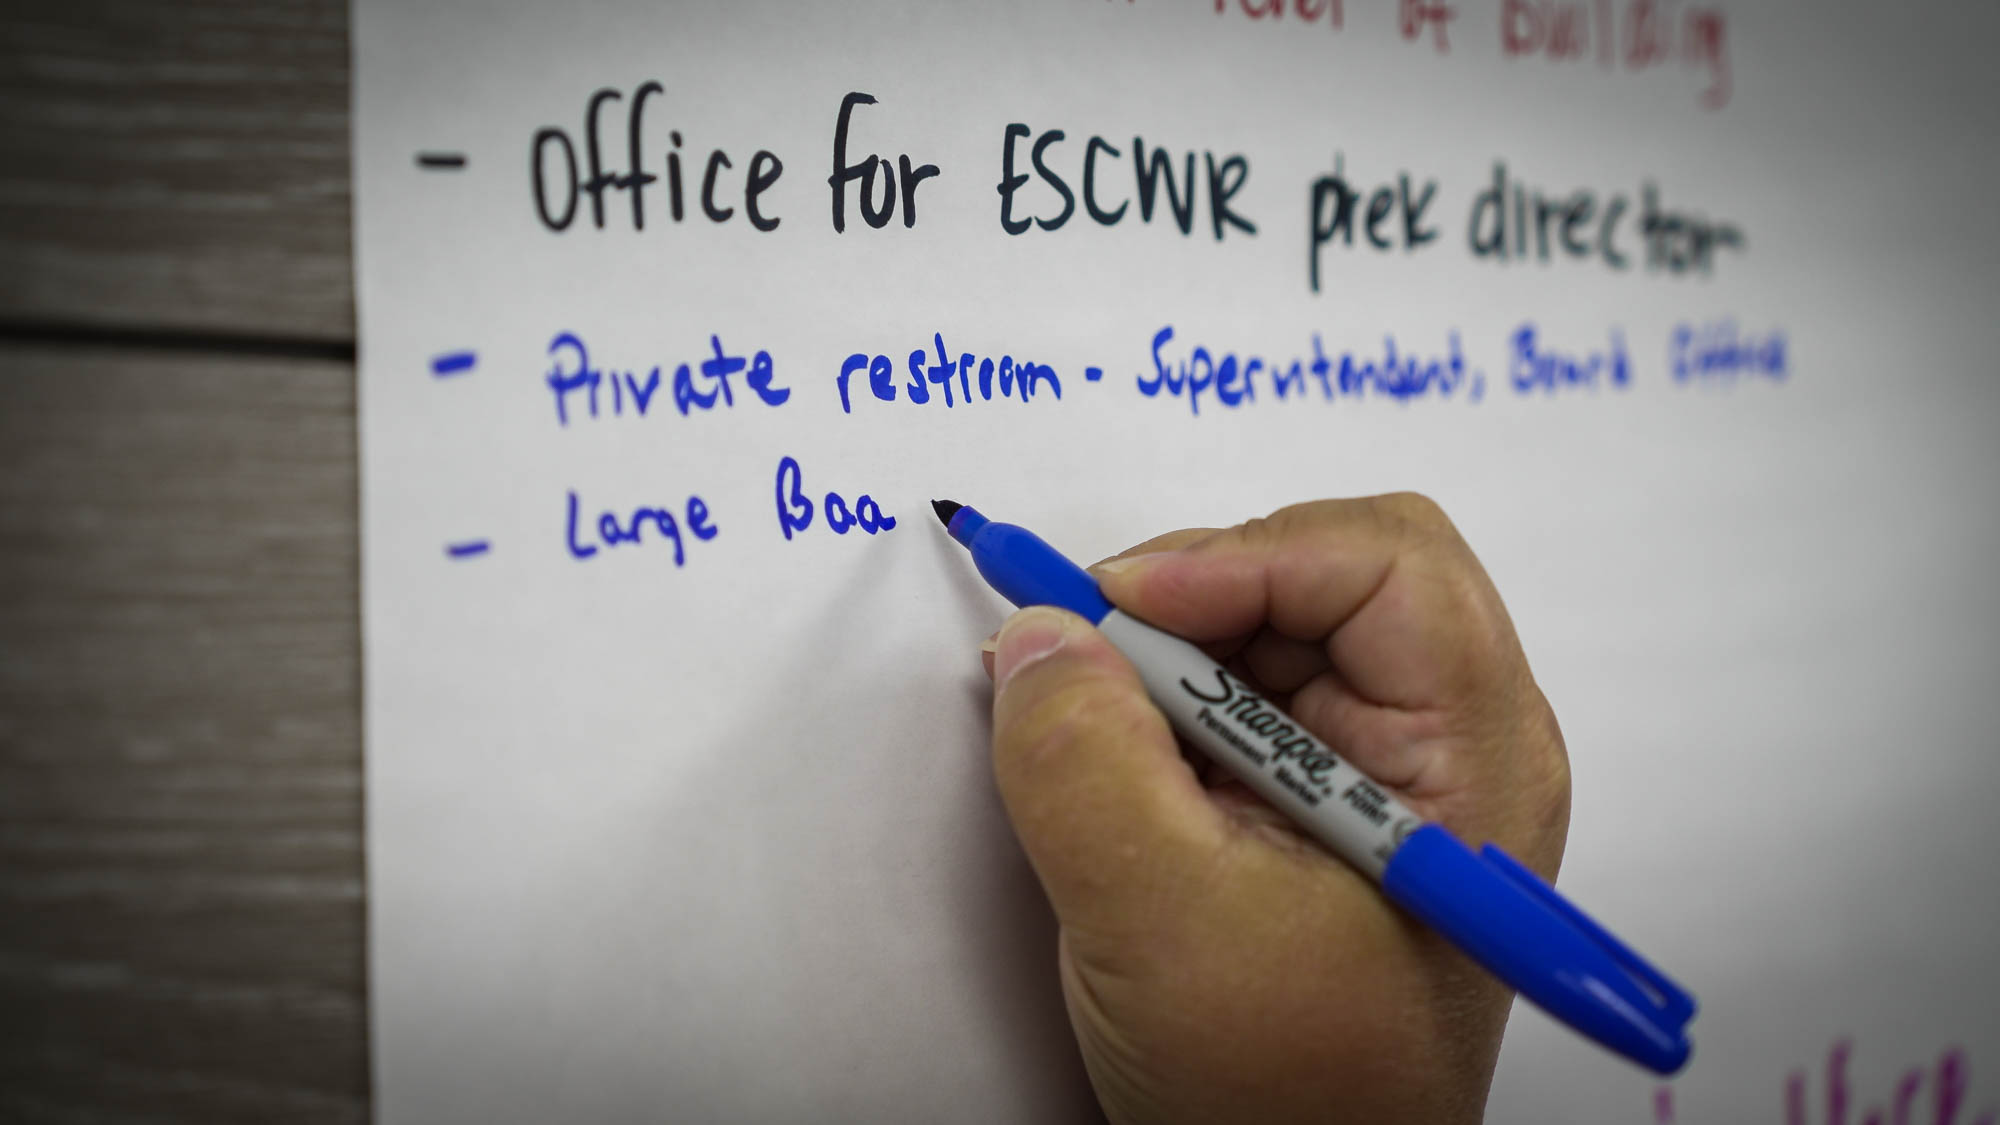 level of building
- Office for ESCWR prek director
- Private restroom - Superintendent, Board Office
- Large Baa
Sharpie.
Permanent Marker
FINE POINT